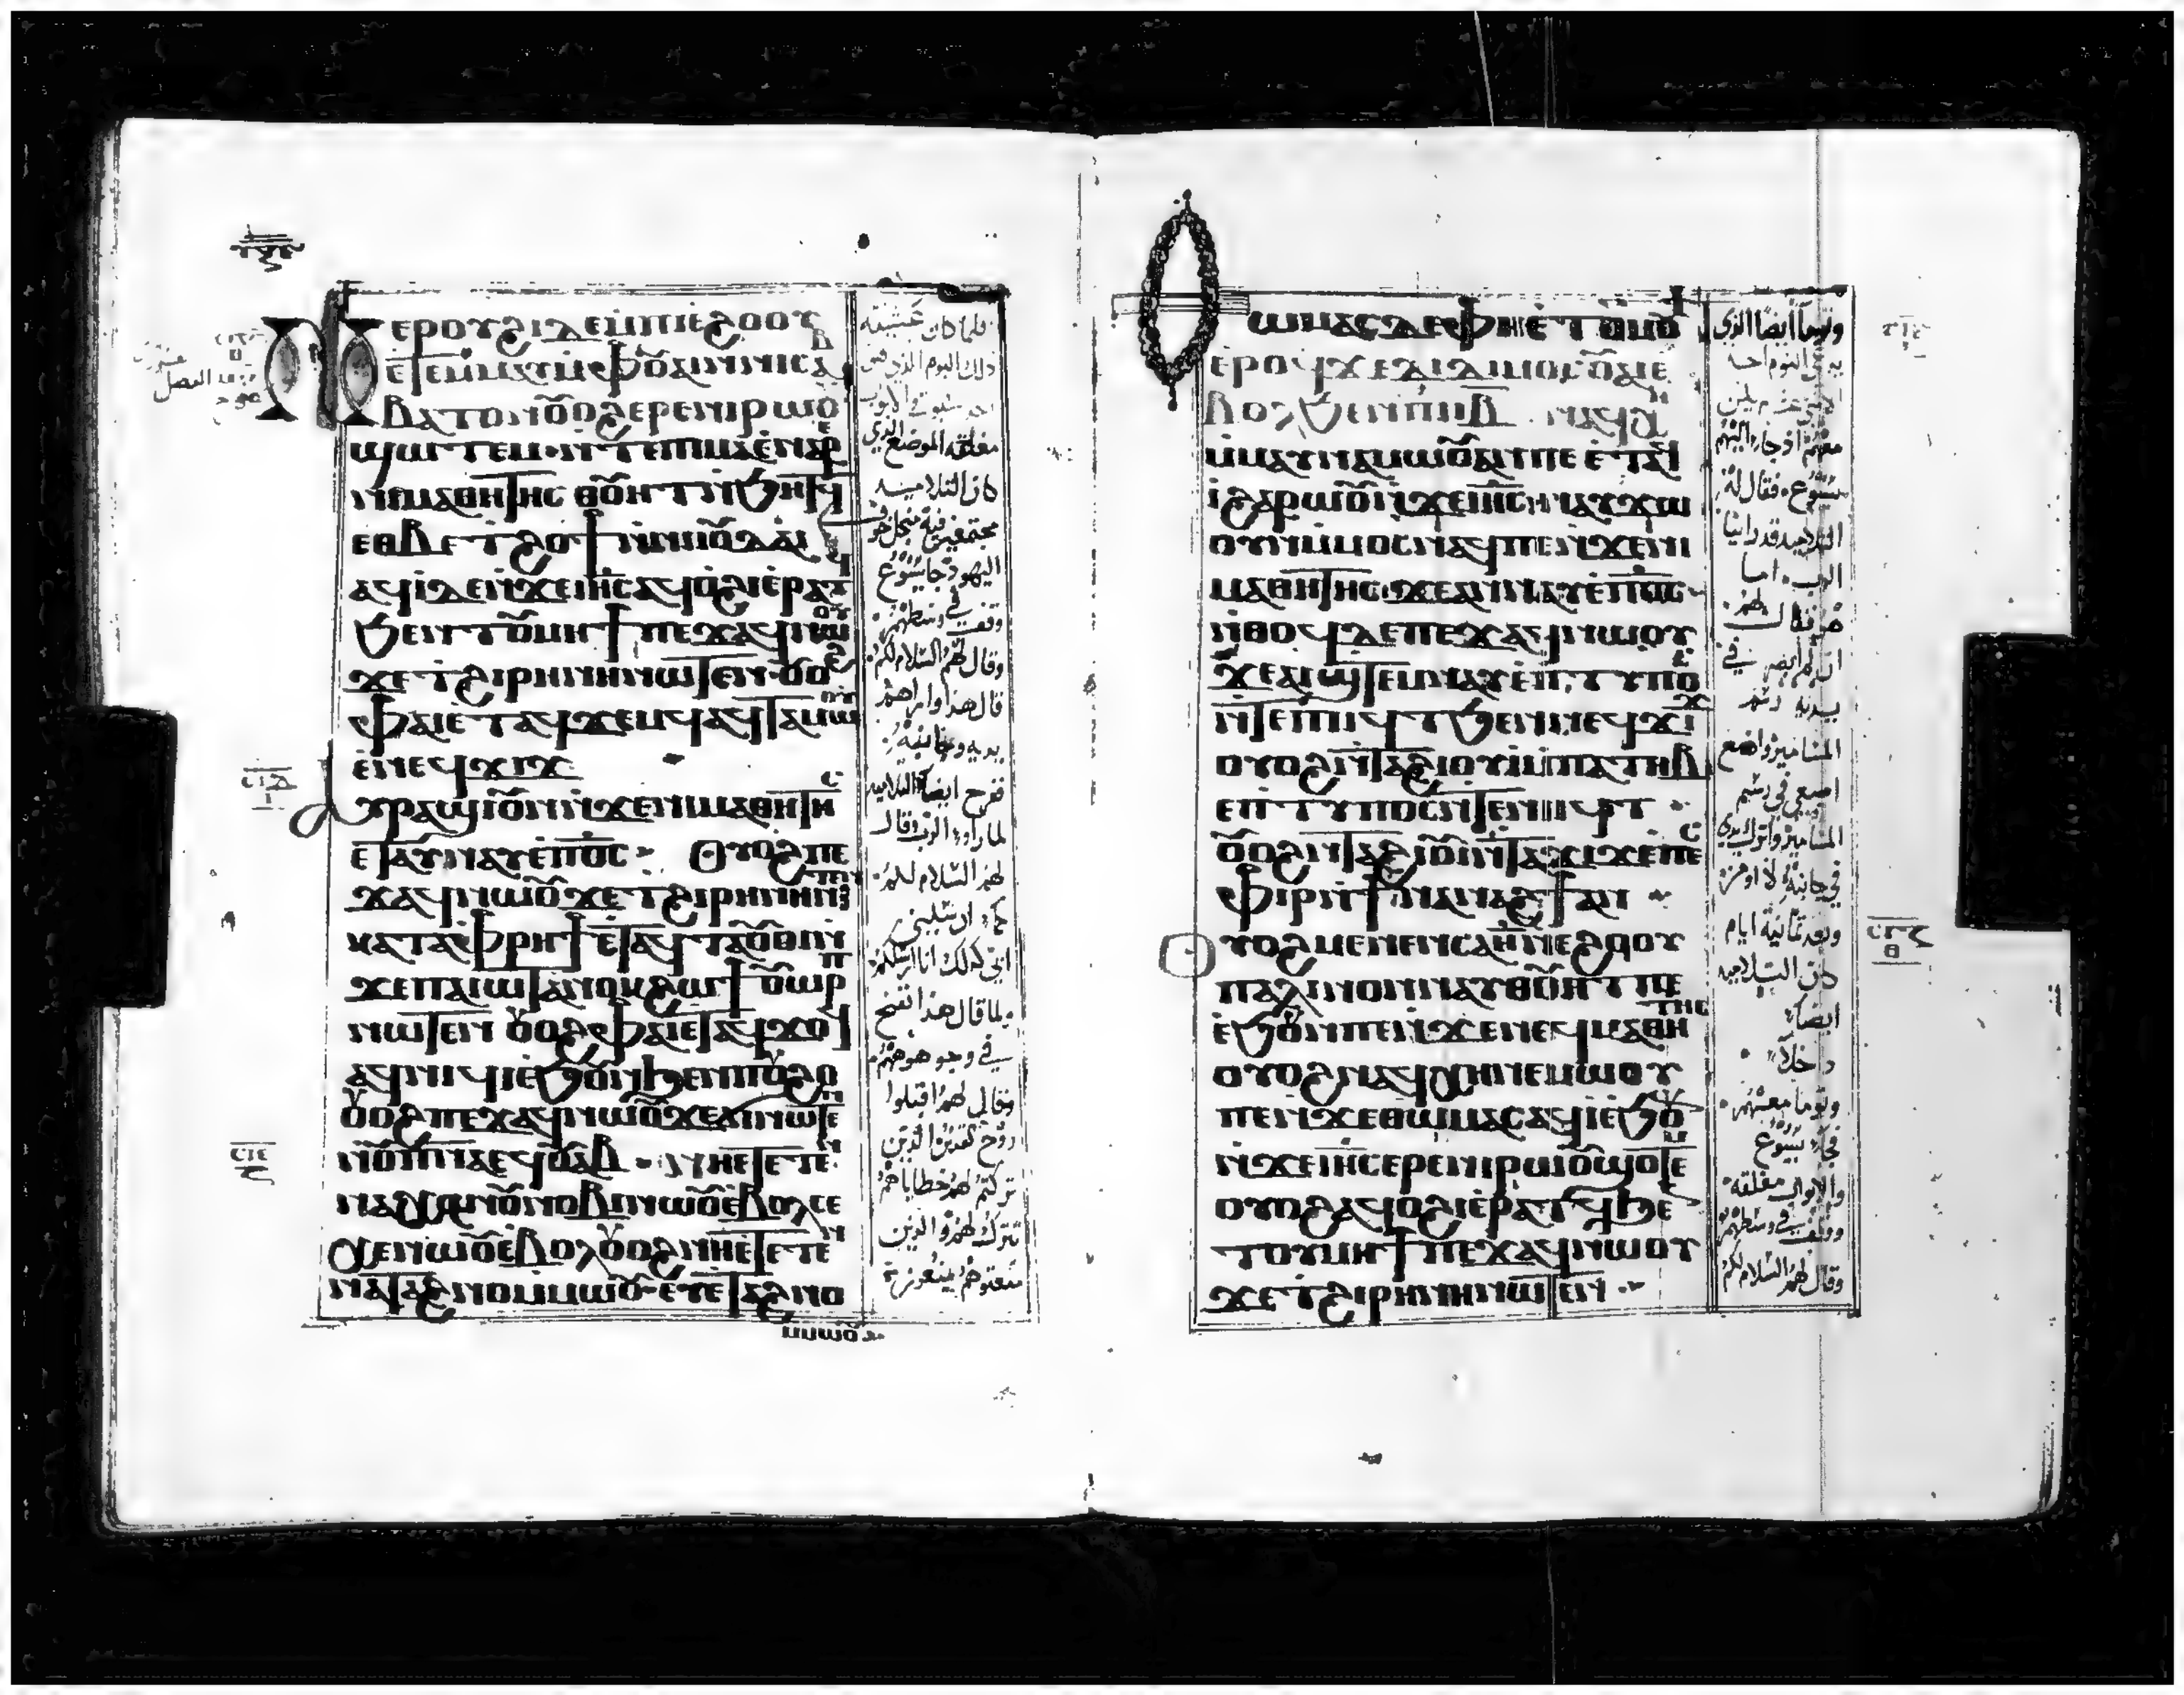 ⲉⲣⲟⲩϩⲓⲇⲉⲙⲡⲓⲉϩⲟⲟⲩ
ⲉⲧⲉⲙⲙⲁⲩⲙⲫⲟⲩⲁⲓⲛⲛⲓⲥⲁ
ⲃⲃⲁⲧⲟⲛⲟⲩⲟϩⲉⲣⲉⲛⲓⲣⲱⲟⲩ
ϣⲱⲧⲉⲙ
ⲛⲓⲙⲁⲑⲏⲧⲏⲥ ⲑⲟⲩⲏⲧⲛϧⲏⲧϥ
ⲉⲑⲃⲉⲧϩⲟϯⲛⲛⲓⲟⲩⲇⲁⲓ
ⲁϥⲓⲇⲉⲛϫⲉⲓⲏⲥⲁϥⲟϩⲓⲉⲣⲁⲧϥ
ϧⲉⲛⲧⲟⲩⲙⲏϯⲡⲉϫⲁϥⲛⲱⲟⲩ
ϫⲉⲧϩⲓⲣⲏⲛⲏⲛⲱⲧⲉⲛ·ⲟⲩⲟϩ
ⲫⲁⲓⲉⲧⲁϥϫⲉⲙϥⲁϥⲧⲁⲙⲱⲟⲩ
ⲉⲛⲉϥϫⲓϫ
ⲁⲩⲣⲁϣⲓⲟⲩⲛⲛϫⲉⲛⲓⲙⲁⲑⲏⲧⲏⲥ
ⲉⲧⲁⲩⲛⲁⲩⲉⲡⲟⲥ · ⲟⲩⲟϩⲡⲉ
ϫⲁϥⲛⲱⲟⲩϫⲉⲧϩⲓⲣⲏⲛⲏⲛⲱⲧⲉⲛ
ⲕⲁⲧⲁⲫⲣⲏϯⲉⲧⲁϥⲧⲁⲟⲩⲟⲓⲛ
ϫⲉⲡⲁⲓⲱⲧⲁⲛⲟⲕϩⲱϯⲟⲩⲱⲣⲡ
ⲛⲱⲧⲉⲛ ⲟⲩⲟϩⲫⲁⲓⲉⲧⲁϥϫⲟϥ
ⲁϥⲛⲓϥⲓⲉϧⲟⲩⲛϧⲉⲛⲡⲟⲩϩⲟ
ⲟⲩⲟϩⲡⲉϫⲁϥⲛⲱⲟⲩϫⲉϭⲓⲛⲱⲧⲉⲛ
ⲛⲟⲩⲡⲛⲁⲉϥⲟⲩⲁⲃ · ⲛⲏⲉⲧⲉⲧⲉⲛ
ⲛⲁⲭⲁⲛⲟⲩⲛⲟⲃⲓⲛⲱⲟⲩⲉⲃⲟⲗⲥⲉ
ⲭⲏⲛⲱⲟⲩⲉⲃⲟⲗ ⲟⲩⲟϩⲛⲏⲉⲧⲉⲧⲉⲛ
ⲛⲁⲧⲁϩⲛⲟⲙⲙⲱⲟⲩ·ⲉⲩⲉⲧⲁϩⲛⲟ
ⲙⲙⲱⲟⲩ
فلما كان عشية
ذلك اليوم الذي هو
مغلقة الموضع الذي
كان التلاميذ
مجتمعين فيه من اجل خوف
اليهود جا يسوع
وقف في وسطهم
وقال لهم السلام لكم
قال هذا واراهم
يديه وجانبه
ففرح ايضا التلاميذ
لما راوا الرب وقال
لهم السلام لكم
كما ارسلني
ابي كذلك انا ارسلكم
ولما قال هذا نفخ
في وجوههم
وقال لهم اقبلوا
روح القدس الذين
تركتم لهم خطاياهم
تترك لهم والذين
ⲑⲱⲙⲁⲥⲇⲉⲫⲏⲉⲧⲟⲩⲙⲟⲩϯ
ⲉⲣⲟϥϫⲉⲇⲓⲇⲩⲙⲟⲥ ⲟⲩⲁⲓⲉ
ⲃⲟⲗϧⲉⲛⲡⲓⲓⲃ ⲛⲁϥⲭⲏ
ⲙⲙⲁⲩⲛⲉⲙⲱⲟⲩⲁⲛⲡⲉ ⲉⲧⲁϥⲓ
ⲓϩⲁⲣⲱⲟⲩⲛϫⲉⲓⲏⲥ·ⲛⲁⲩϫⲱ
ⲟⲩⲛⲙⲙⲟⲥⲛⲁϥⲡⲉⲛϫⲉⲛⲓ
ⲙⲁⲑⲏⲧⲏⲥ·ϫⲉⲁⲛⲛⲁⲩⲉⲡⲟⲥ
ⲛⲑⲟϥⲇⲉⲡⲉϫⲁϥⲛⲱⲟⲩ
ϫⲉⲁⲓϣⲧⲉⲙⲛⲁⲩⲉⲡⲓⲧⲩⲡⲟⲥ
ⲛⲧⲉⲡⲓϥⲧϧⲉⲛⲛⲉϥϫⲓϫ
ⲟⲩⲟϩⲛⲧⲁϩⲓⲟⲩⲓⲙⲡⲁⲧⲏⲃ
ⲉⲡⲓⲧⲩⲡⲟⲥⲛⲧⲉⲛⲓⲓϥⲧ ·
ⲟⲩⲟϩⲛⲧⲁϩⲓⲟⲩⲓⲛⲧⲁϫⲓϫⲉⲡⲉϥ
ⲥⲫⲓⲣⲛϯⲛⲁⲛⲁϩϯⲁⲛ ·
ⲟⲩⲟϩⲙⲉⲛⲉⲛⲥⲁⲏⲛⲉϩⲟⲟⲩ
ⲡⲁⲗⲓⲛⲟⲛⲛⲁⲩⲑⲟⲩⲏⲧⲡⲉ
ⲉϧⲟⲩⲛⲡⲉⲛϫⲉⲛⲉϥⲙⲁⲑⲏⲧⲏⲥ
ⲟⲩⲟϩⲛⲁϥⲭⲏⲛⲉⲙⲱⲟⲩ
ⲡⲉⲛϫⲉⲑⲱⲙⲁⲥⲁϥⲓⲉϧⲟⲩⲛ
ⲛϫⲉⲓⲏⲥⲉⲣⲉⲛⲓⲣⲱⲟⲩϣⲟⲧⲉⲙ
ⲟⲩⲟϩⲁϥⲟϩⲓⲉⲣⲁⲧϥϧⲉⲛ
ⲧⲟⲩⲙⲏϯⲡⲉϫⲁϥⲛⲱⲟⲩ
ϫⲉⲧϩⲓⲣⲏⲛⲏⲛⲱⲧⲉⲛ ·
وتوما ايضا الذي
معهم اذ جا اليهم
يسوع فقال له
التلاميذ قد راينا
الرب اما
هو فقال لهم
ان لم ابصر في
يديه رسم
المسامير واضع
اصبعي في رسم
المسامير واترك يدي
في جانبه لا اومن
وبعد ثمانية ايام
كان التلاميذ
ايضا
داخلا
وتوما معهم
فجا يسوع
والابواب مغلقة
ووقف في وسطهم
وقال لهم السلام لكم